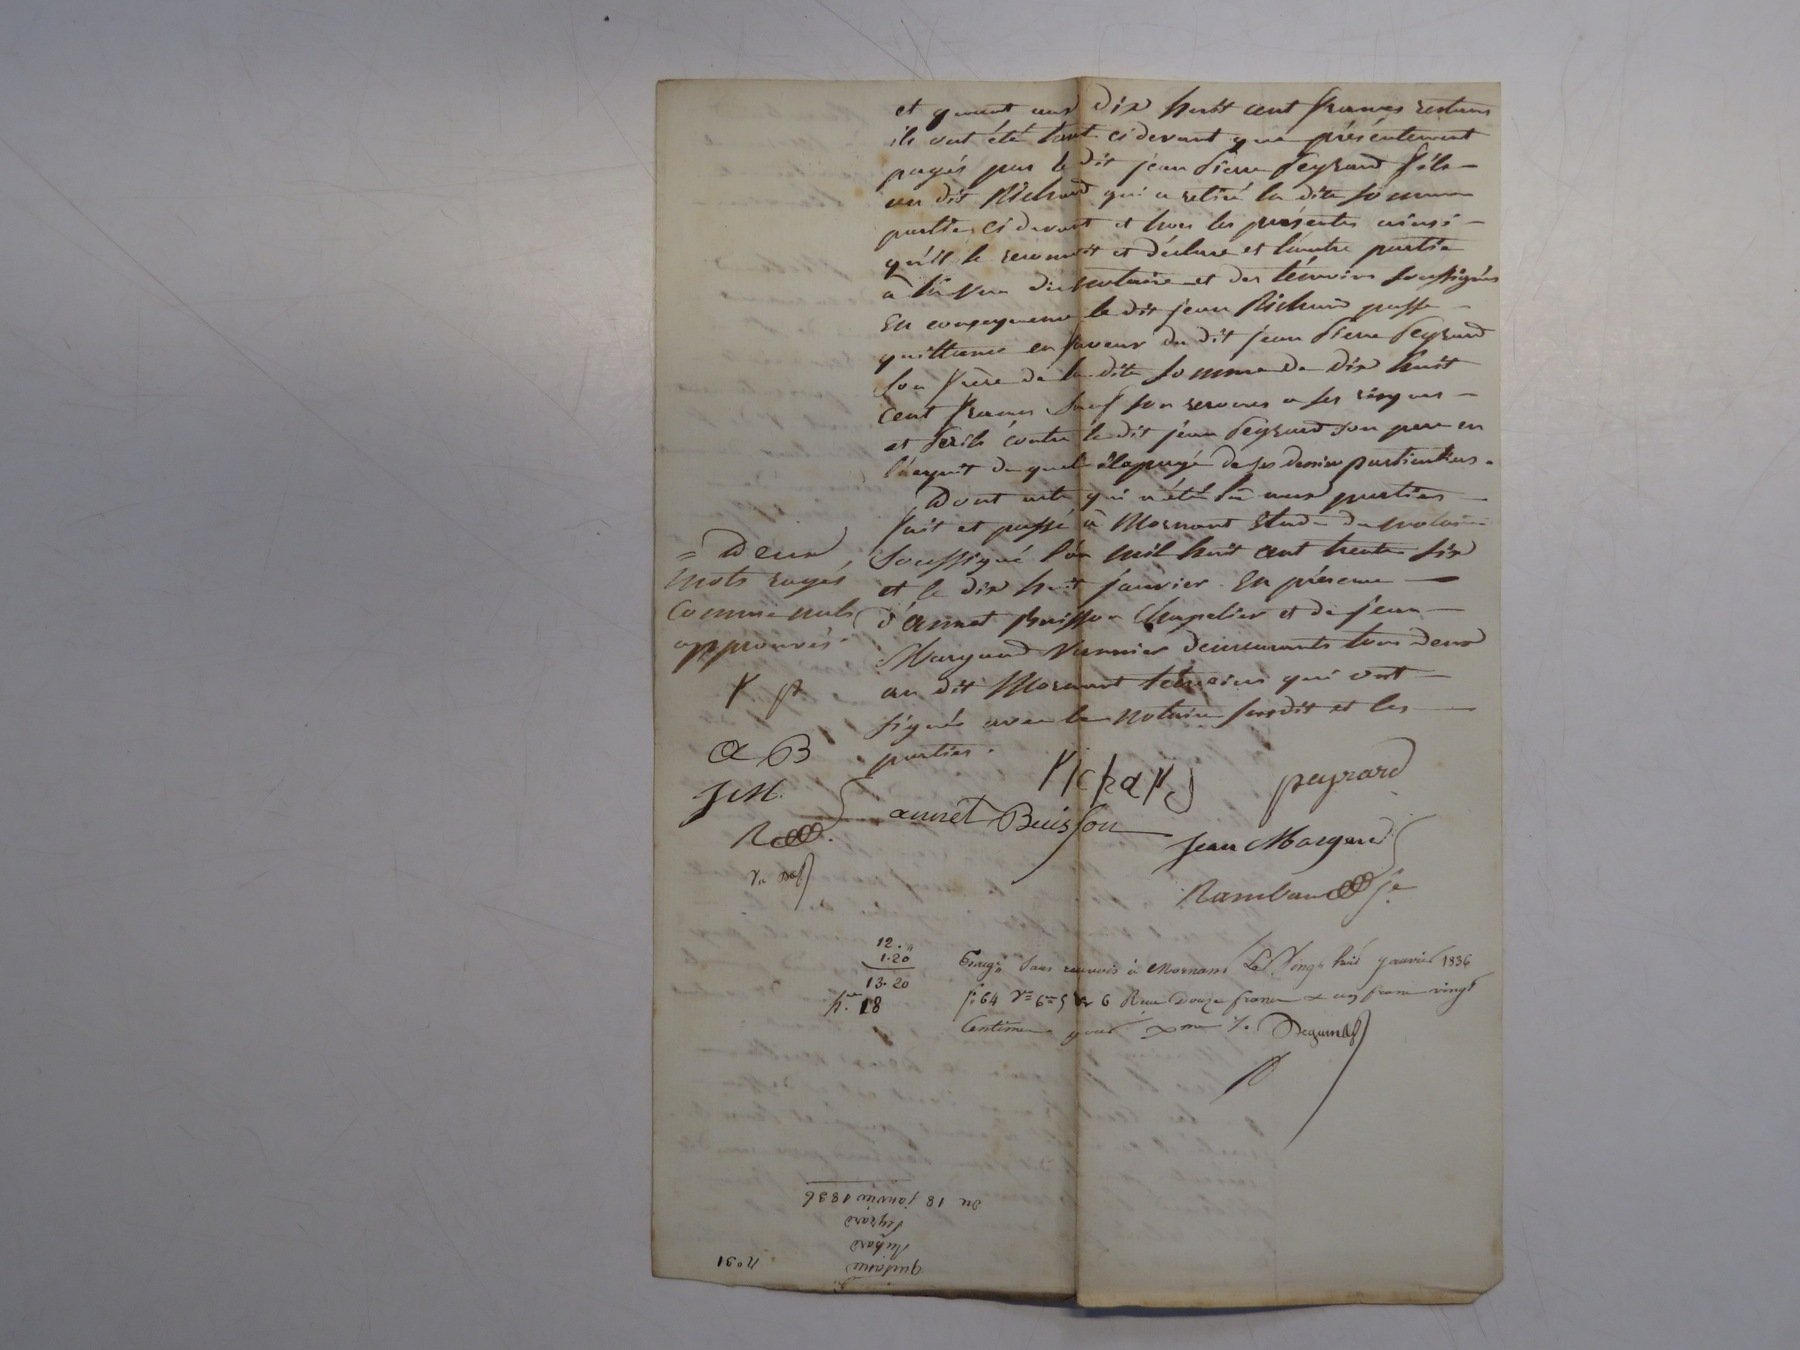 et quant aux dix huit cent francs restans
ils ont été tant cidevant que présentement
payés par le dit jean Pierre Peyrard fils
au dit Richard qui a retiré la dite somme
partie cidevant et hors les présentes ainsi
qu'il le reconnoit et déclare et l'autre partie
à la vue du notaire et des témoins soussignés
En consequence le dit jean Richard passe
quittance en faveur du dit jean Pierre Peyrard
son frère de la dite somme de dix huit
cent francs sauf son recours a ses risques
et Perils contre le dit jean Peyrard son pere en
l'acquit duquel il a payé de ses deniers particuliers.
Dont acte qui a été lu aux parties
fait et passé à Mornant Etude du notaire
soussigné l'an mil huit cent trente six
et le dix huit janvier. En présence
d'annet Buisson Chapelier et de jean
Margand demeurants tous deux
au dit Mornant témoins qui ont
signés avec le notaire susdit et les
parties.
= Deux
mots rayés
comme nuls
approuvés.
P
A B
J M.
R
Richard
peyrard
annet Buisson
Jean Margand
Rambaud
12. "
1. 20
13. 20
18
Enreg. sans renvois à Mornant Le Vingt huit janvier 1836
f. 64 6 Reçu Douze francs un franc vingt
Centimes pour
du 18 janvier 1836
Peyrard
Richard
quittance
n° 91